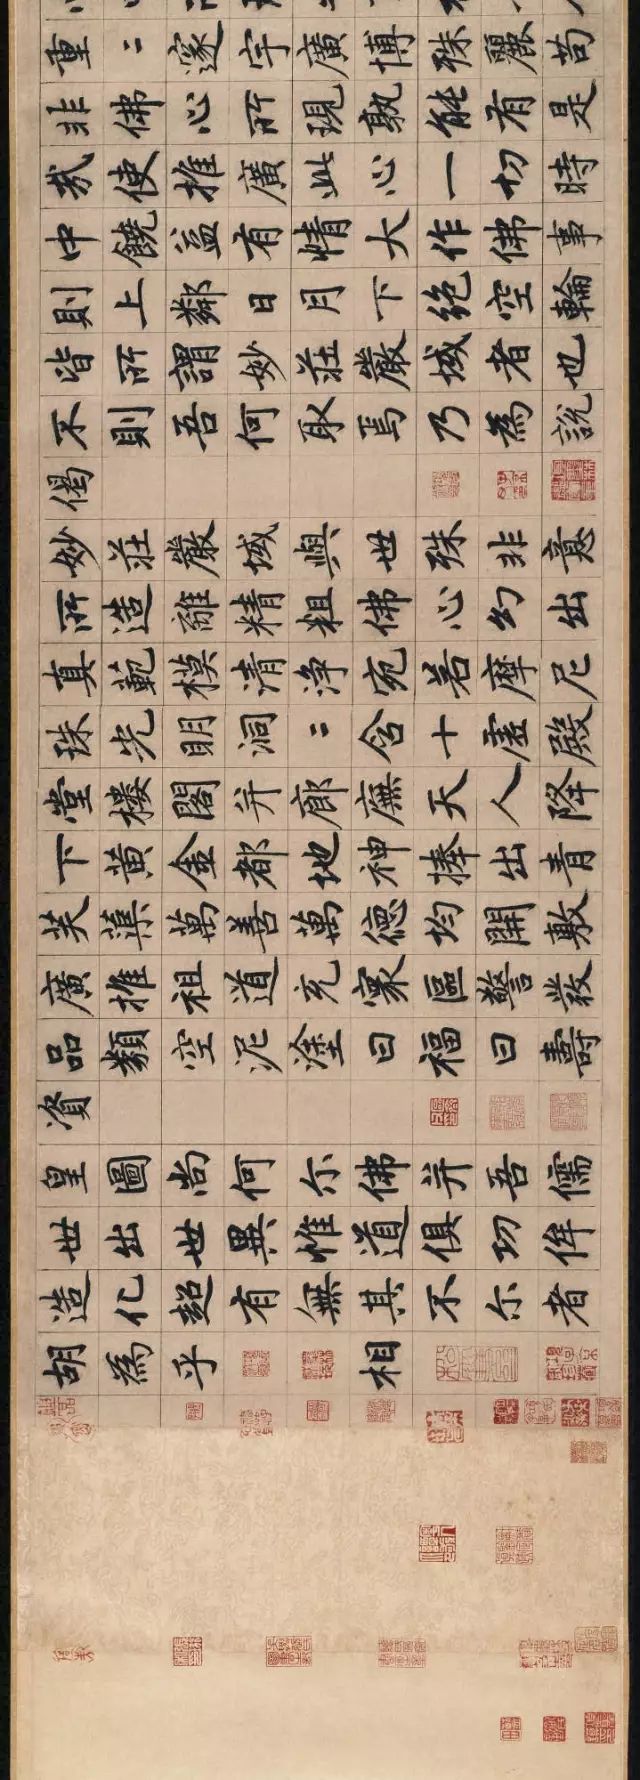 重〃邃宇廣博殊麗苟
非佛心所現孰能有是
哉使推廣此心一切時
中饒益有情大作佛事
則上鄰日月下絕空輪
皆所謂妙莊嚴域者也
不則吾何取焉乃為說
偈
妙莊嚴域與世殊非意
所造離精粗佛心幻出
真範模清淨宛若摩尼
珠光明洞〃含十虛殿
堂樓閣并廊廡天人降
下黃金都地神捧出青
芙蕖萬善萬德均開敷
廣推祖道充寰區警發
品類空泥塗曰福曰壽
資
皇圖尚何尔佛并吾儒
世出世異惟道俱功侔
造化超有無其不尔者
胡為乎相